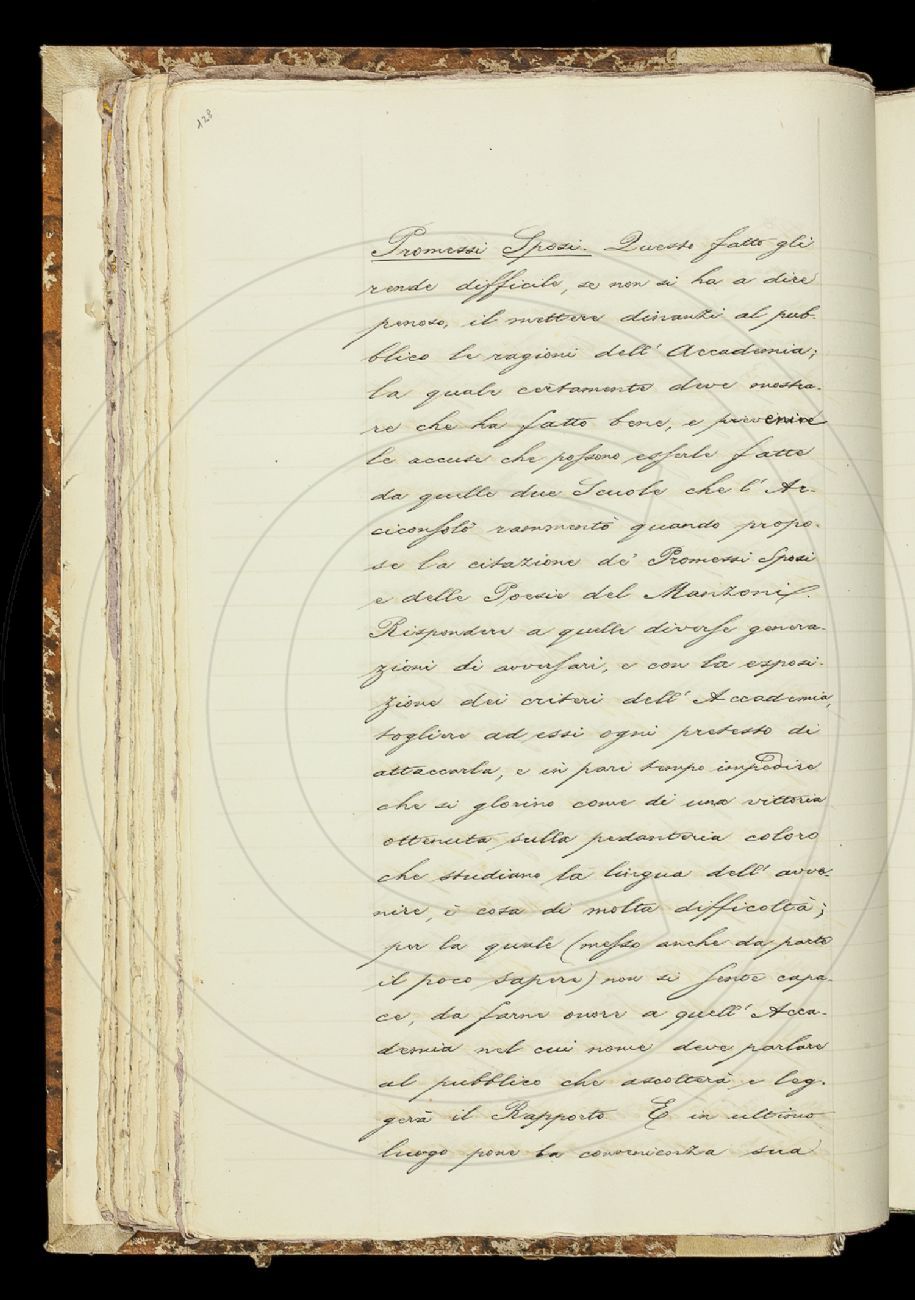 128
Promessi Sposi. Questo fatto gli
rende difficile, se non si ha a dire
penoso, il mettere dinanzi al pub-
blico le ragioni dell' Accademia;
la quale certamente deve mostra-
re che ha fatto bene, e prevenire
le accuse che possono esserle fatte
da quelle due Scuole che l' Ar-
ciconsolo rammentò quando propo-
se la citazione de' Promessi Sposi
e delle Poesie del Manzoni.
Rispondere a quelle diverse genera-
zioni di avversari, e con la esposi-
zione dei criteri dell' Accademia,
togliere ad essi ogni pretesto di
attaccarla, e in pari tempo impedire
che si glorino come di una vittoria
ottenuta sulla pedanteria coloro
che studiano la lingua dell' avve-
nire, è cosa di molta difficoltà;
per la quale (messo anche da parte
il poco sapere) non si sente capa-
ce, da farne onore a quell' Acca-
demia nel cui nome deve parlare
al pubblico che ascolterà e leg-
gerà il Rapporto. E in ultimo
luogo pone la convenienza sua